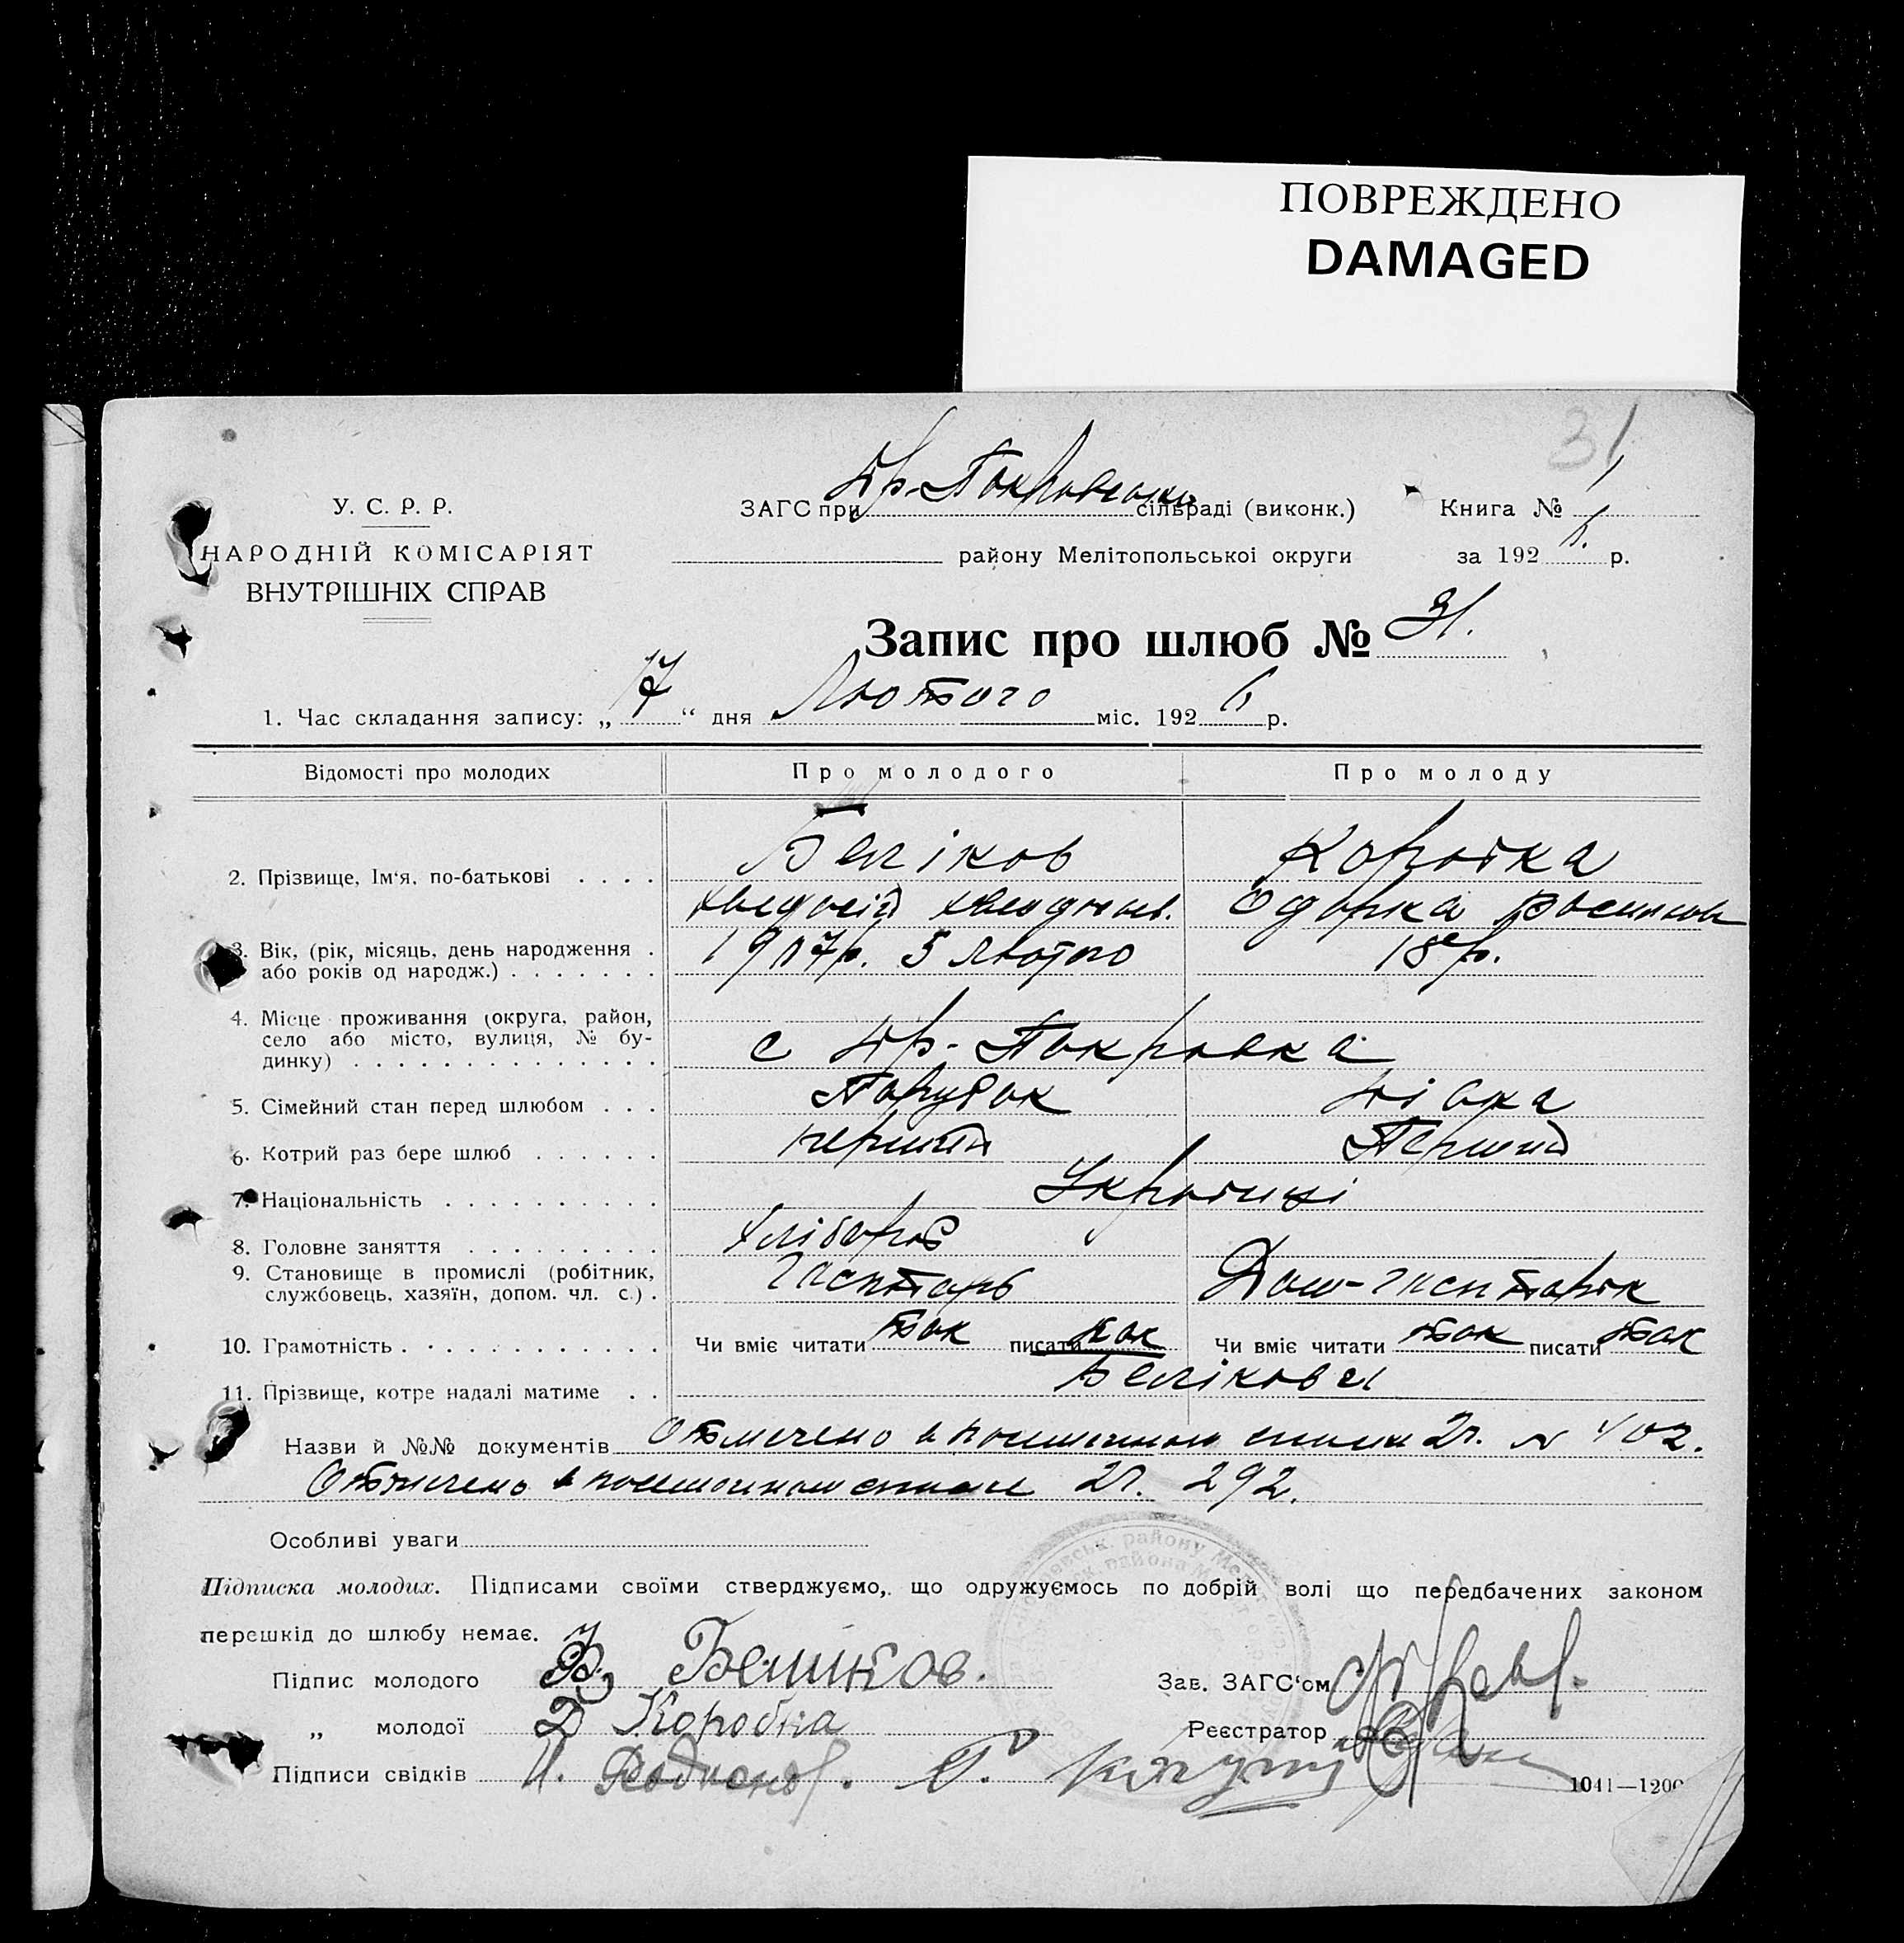 ПОВРЕЖДЕНО
DAMAGED
31
У. С. Р. Р.
НАРОДНІЙ КОМІСАРІЯТ
ВНУТРІШНІХ СПРАВ
ЗАГС при сільраді (виконк.)
району Мелітопольської округи
Книга № 1
за 1926. р.
Запис про шлюб № 31.
1. Час складання запису: „ 17 “ дня Лютого міс. 1926 р.
Відомості про молодих Про молодого Про молоду
2. Прізвище, Ім'я, по-батькові . . . . Беліков Коробка
Одарка
3. Вік, (рік, місяць, день народження . 1907р. 5 лютого 18 р.
або років од народж.) . . . . . . .
4. Місце проживання (округа, район,
село або місто, вулиця, № бу- с Др-Покровка
динку) . . . . . . . . . . . . . .
5. Сімейний стан перед шлюбом . . . Парубок Дівка
6. Котрий раз бере шлюб . . . . . . перший Перший
7. Національність . . . . . . . . . . Українці
8. Головне заняття . . . . . . . . . Хлібороб
9. Становище в промислі (робітник,
службовець, хазяїн, допом. чл. с.) .
10. Грамотність . . . . . . . . . . . . Чи вміє читати так писати так Чи вміє читати так писати так
11. Прізвище, котре надалі матиме . . Белікови
Назви й №№ документів Отмечено в 2г. № 402.
Отмечено в 2г. 292.
Особливі уваги
Підписка молодих. Підписами своїми стверджуємо, що одружуємось по добрій волі що передбачених законом
перешкід до шлюбу немає.
Підпис молодого Ф. Беликов. Зав. ЗАГС'ом
„ молодої Д Коробка Реєстратор
Підписи свідків И. Родионов.
1041—1200